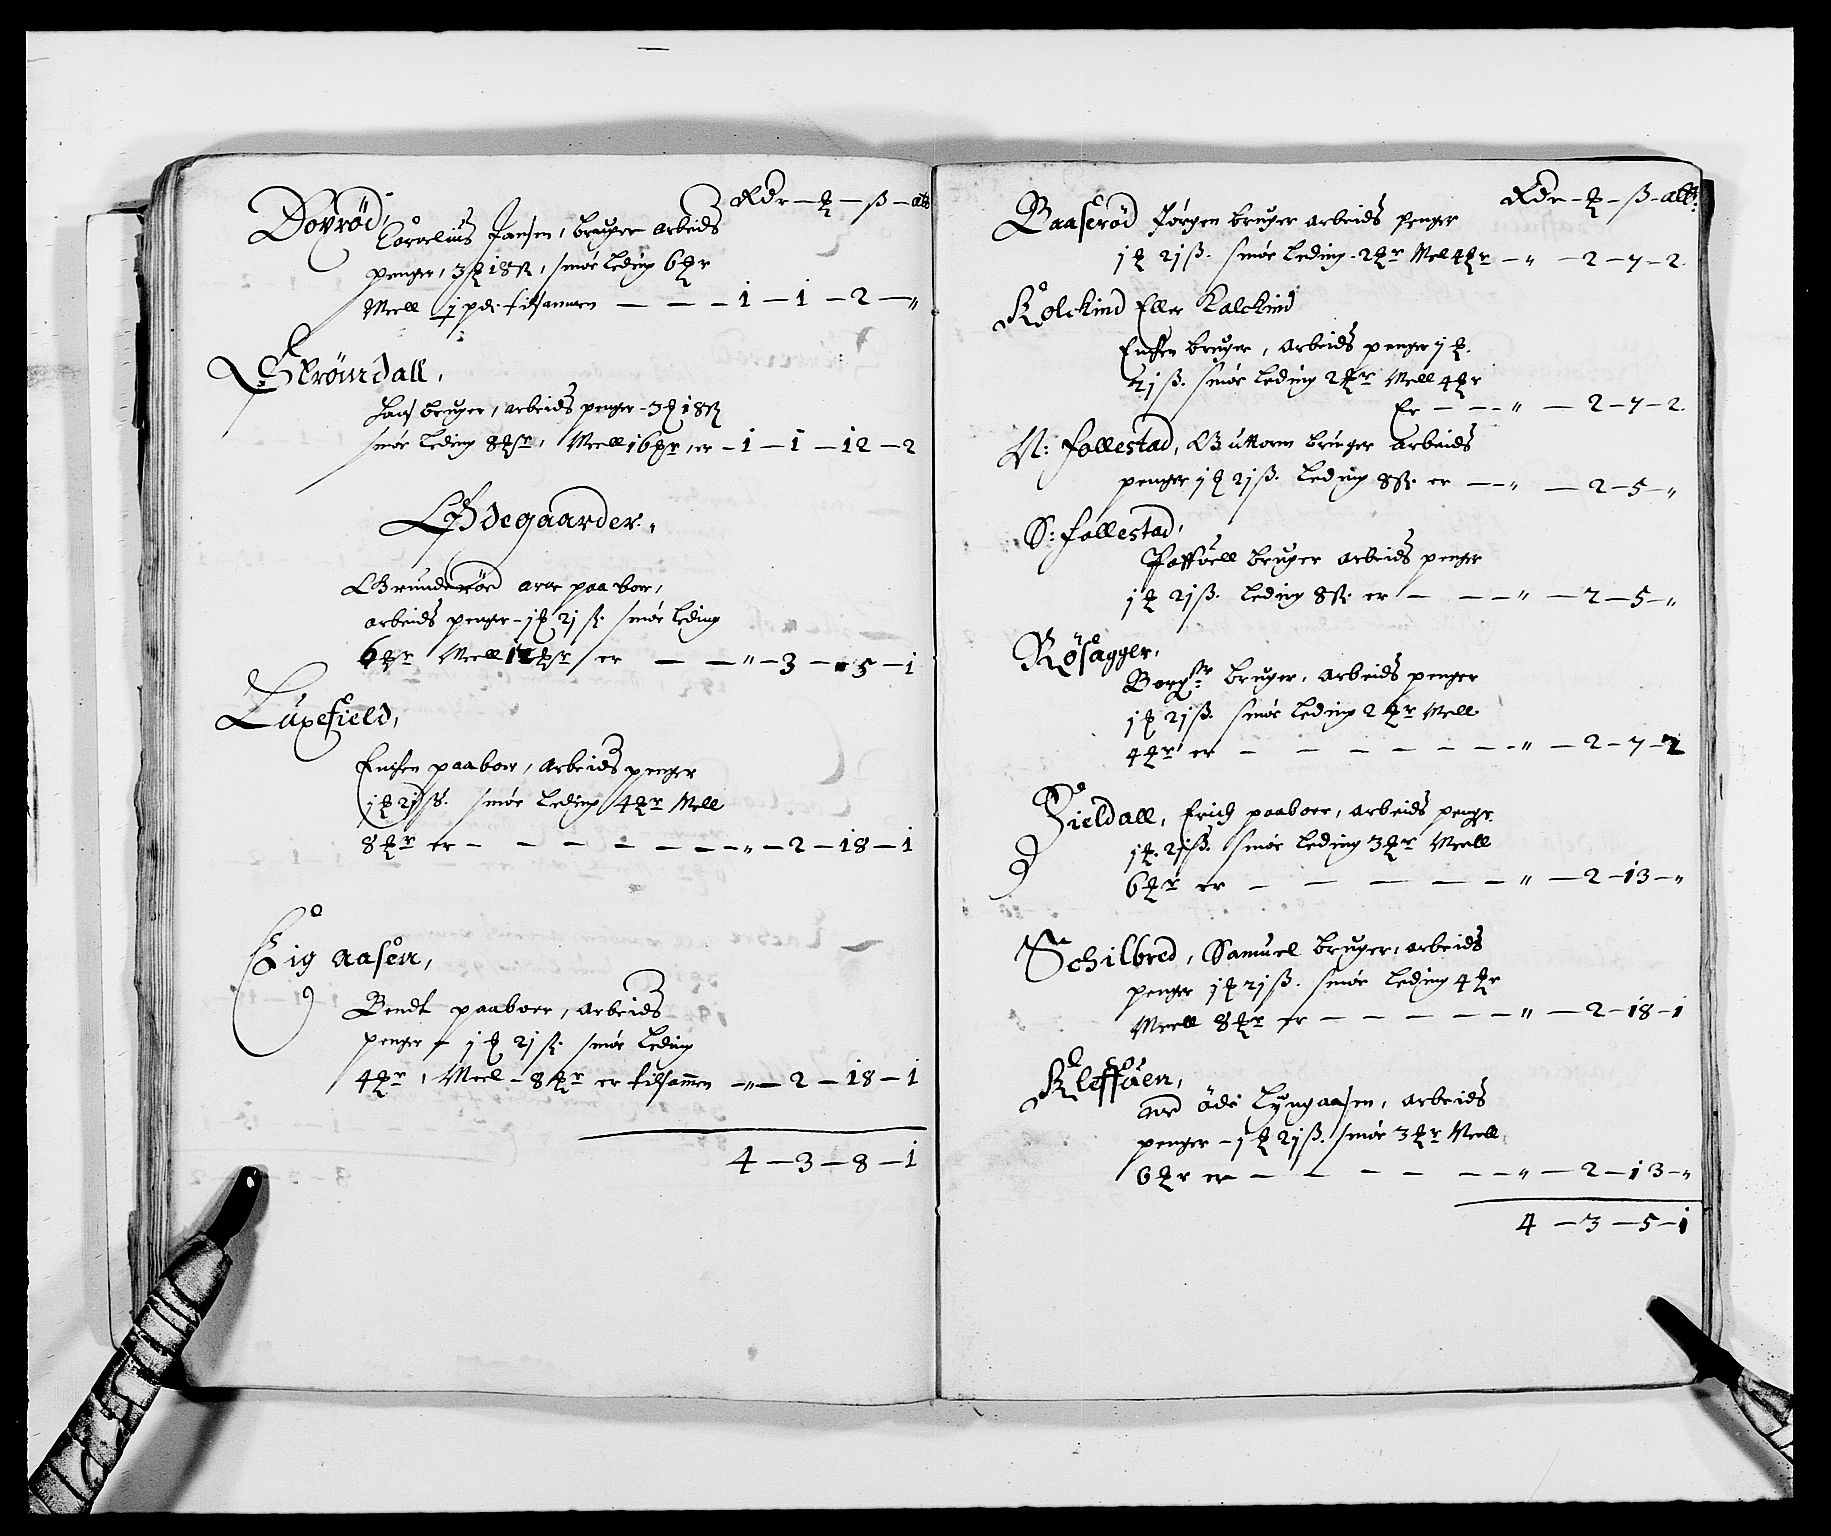 Rdr — ℔ — ß — alb
Dovrød,
Cornelius Jansen, bruger arbeids
penger, 3 ℔ 18 ß, smør leding 6 ℔r
Meell 1 pd. tilsammen — — — 1 — 1 — 2 — "
Strømdall,
Hans bruger, arbeids penger - 3 ℔ 18 ß
smør leding 8 ℔r, Meell 16 ℔r, er — 1 — 1 — 12 — 2
Ødegaarder.,
Grunderød arne paaboer,
arbeids penger - 1 ℔ 21 ß. smør leding
6 ℔r Meell 12 ℔r er — — " — 3 — 5 — 1
Luxefield,
Enchen paaboer, arbeids penger
1 ℔ 21 ß. smør leding 4 ℔r Mell
8 ℔r er — — — — — — — " — 2 — 18 — 1
Eig aasen,
Bendt paaboer, arbeids
penger - 1 ℔ 21 ß. smør leding
4 ℔r, Meel - 8 ℔r er tilsammen — " — 2 — 18 — 1
4 — 3 — 8 — 1
Rdr — ℔ — ß — alb:
Baaserød Jørgen bruger arbeids penger
1 ℔ 21 ß. smør leding - 2 ℔r Mel 4 ℔r — " — 2 — 7 — 2
Kolckind Eller Kalckind
Enchen bruger, arbeids penger 1 ℔.
21 ß. smør leding 2 ℔r Mell 4 ℔r
Er — — — " — 2 — 7 — 2
N: follestad, Guttorm bruger arbeids
penger 1 ℔ 21 ß. leding 8 ß. er — — " — 2 — 5 — "
S: follestad,
bruger arbeids penger
1 ℔ 21 ß. leding 8 ß. er — — — " — 2 — 5 — "
Røsagger,
bruger, arbeids penger
1 ℔ 21 ß. smør leding 2 ℔r Mell
4 ℔r er — — — — — — " — 2 — 7 — 2
Fieldall, Erich paaboer, arbeids penger
1 ℔. 21 ß. smør leding 3 ℔r Meell
6 ℔r er — — — — — " — 2 — 13 — "
Schilbred, Samuel bruger, arbeids
penger 1 ℔ 21 ß. smør leding 4 ℔r
Meell 8 ℔r er — — — — — " — 2 — 18 — 1
Kleffuen,
med øde Lyngaasen, arbeids
penger - 1 ℔ 21 ß. smør 3 ℔r Meell
6 ℔r er — — — — — — " — 2 — 13 — "
4 — 3 — 5 — 1